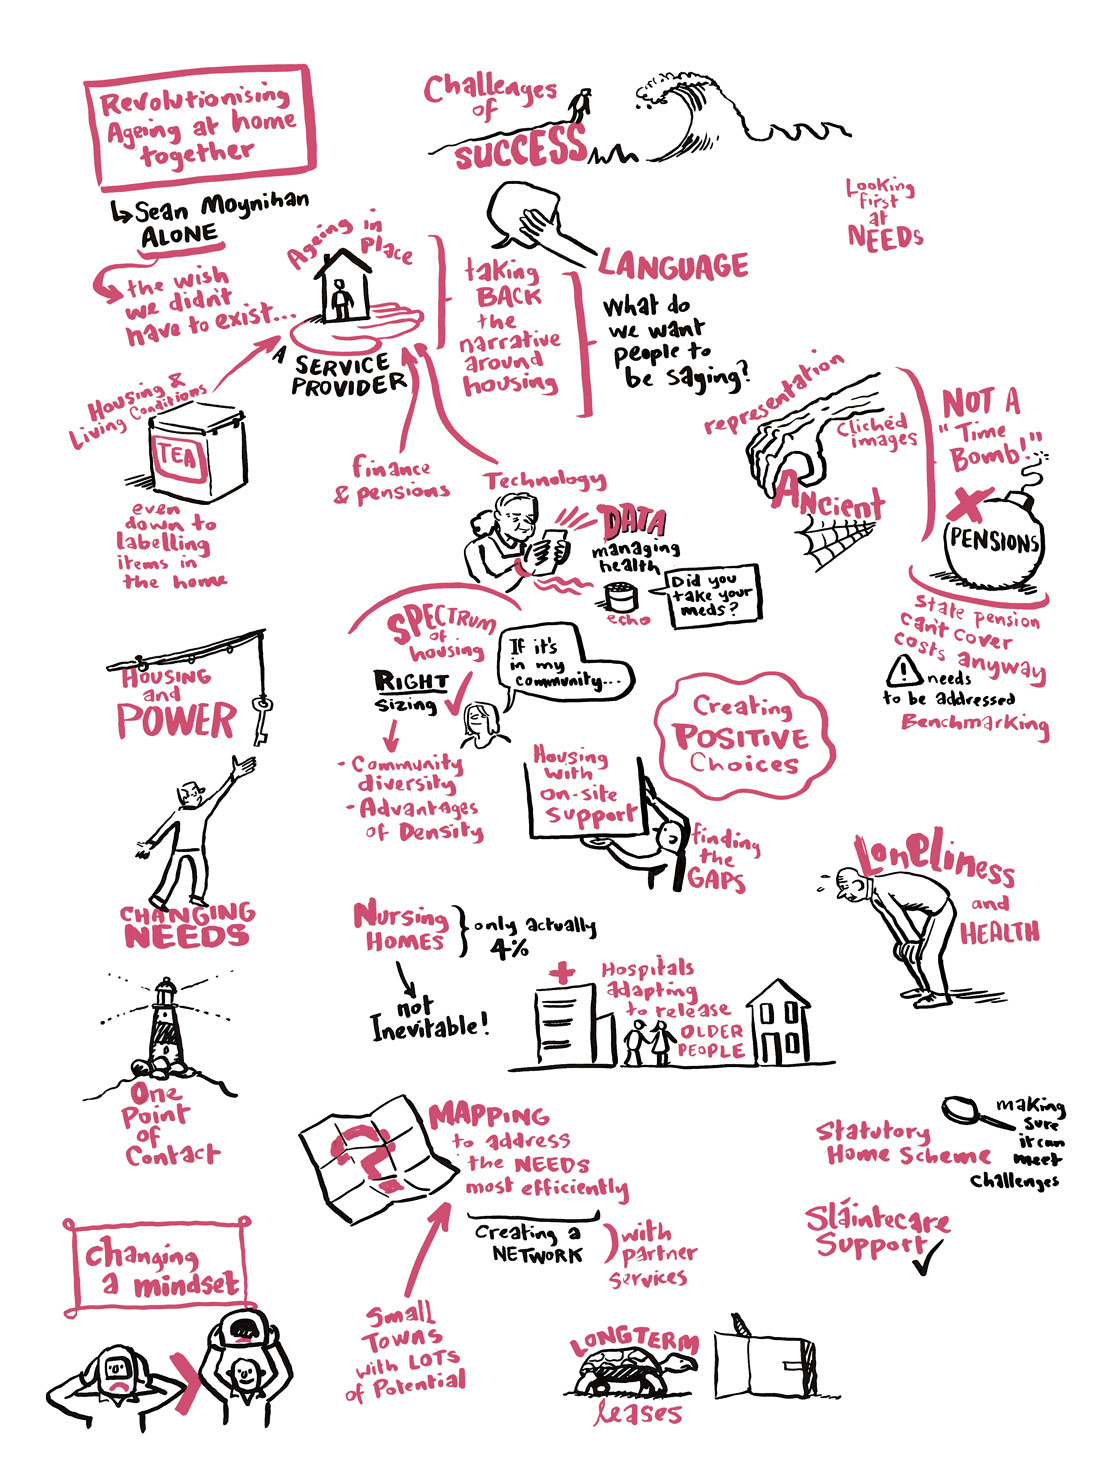 Revolutionising
Ageing at home
together
Sean Moynihan
ALONE
the wish
we didn't
have to exist...
Challenges
of
SUCCESS
Looking
first
at
NEEDS
Ageing in
Place
A SERVICE
PROVIDER
taking
BACK
the
narrative
around
housing
LANGUAGE
What do
we want
people to
be saying?
Housing &
Living Conditions
TEA
even
down to
labelling
items in
the home
finance
& pensions
Technology
DATA
managing
health
echo
Did you
take your
meds?
representation
Clichéd
images
ANCIENT
NOT A
"Time
Bomb!"
PENSIONS
State pension
can't cover
costs anyway
! needs
to be addressed
Benchmarking
SPECTRUM
of
housing
RIGHT
sizing
If it's
in my
community...
- Community
diversity
- Advantages
of Density
Housing
with
on-site
support
finding
the
GAPS
Creating
POSITIVE
Choices
HOUSING
and
POWER
CHANGING
NEEDS
Loneliness
and
HEALTH
Nursing
HOMES
only actually
4%
not
Inevitable!
Hospitals
adapting
to release
OLDER
PEOPLE
One
Point
of
Contact
MAPPING
to address
the NEEDS
most efficiently
?
Creating a
NETWORK
with
partner
services
Small
TOWNS
with LOTS
of Potential
Statutory
Home Scheme
making
sure
it can
meet
challenges
Sláintecare
Support
Changing
a mindset
LONGTERM
leases